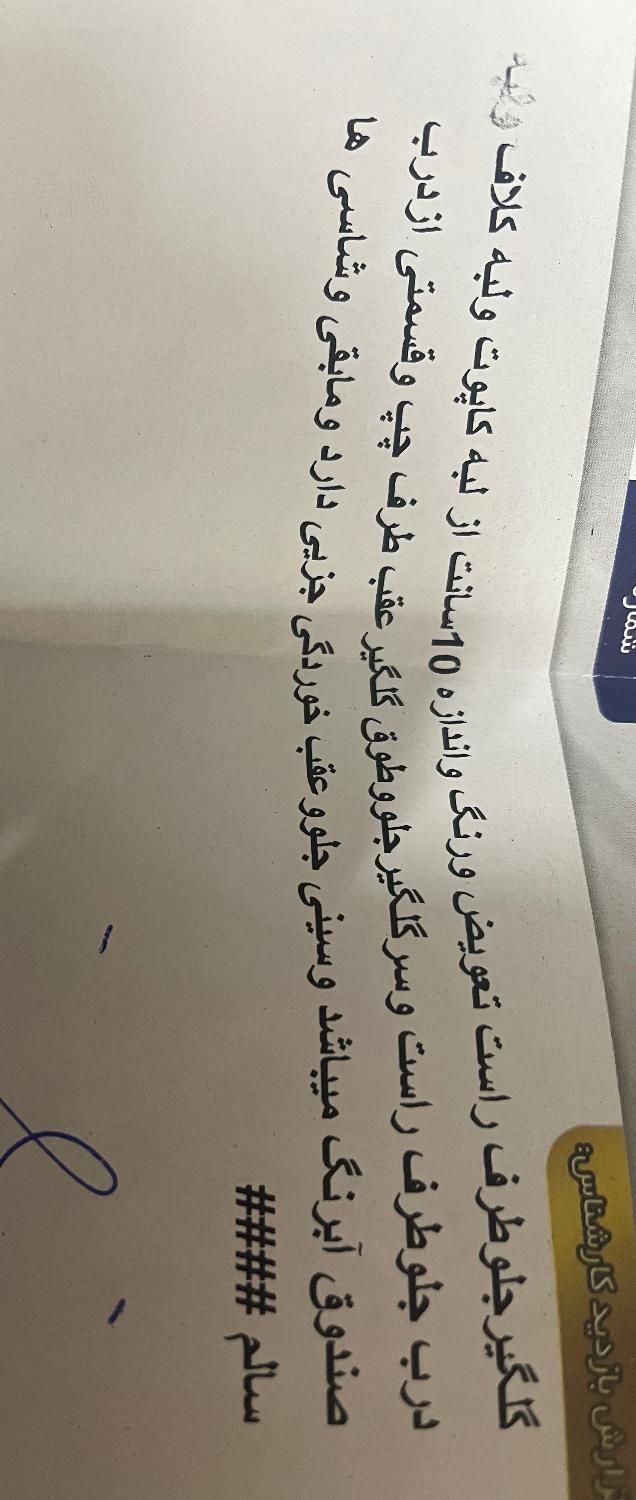 گزارش بازدید کارشناس:
شماره
گلگیر جلو طرف راست تعویض ورنگ واندازه 10سانت از لبه کاپوت ولبه کلاف
درب جلو طرف راست وسر گلگیر جلو وطوق گلگیر عقب طرف چپ وقسمتی ازدرب
صندوق آبرنگ میباشد وسینی جلوو عقب خوردگی جزیی دارد ومابقی وشاسی ها
سالم ####